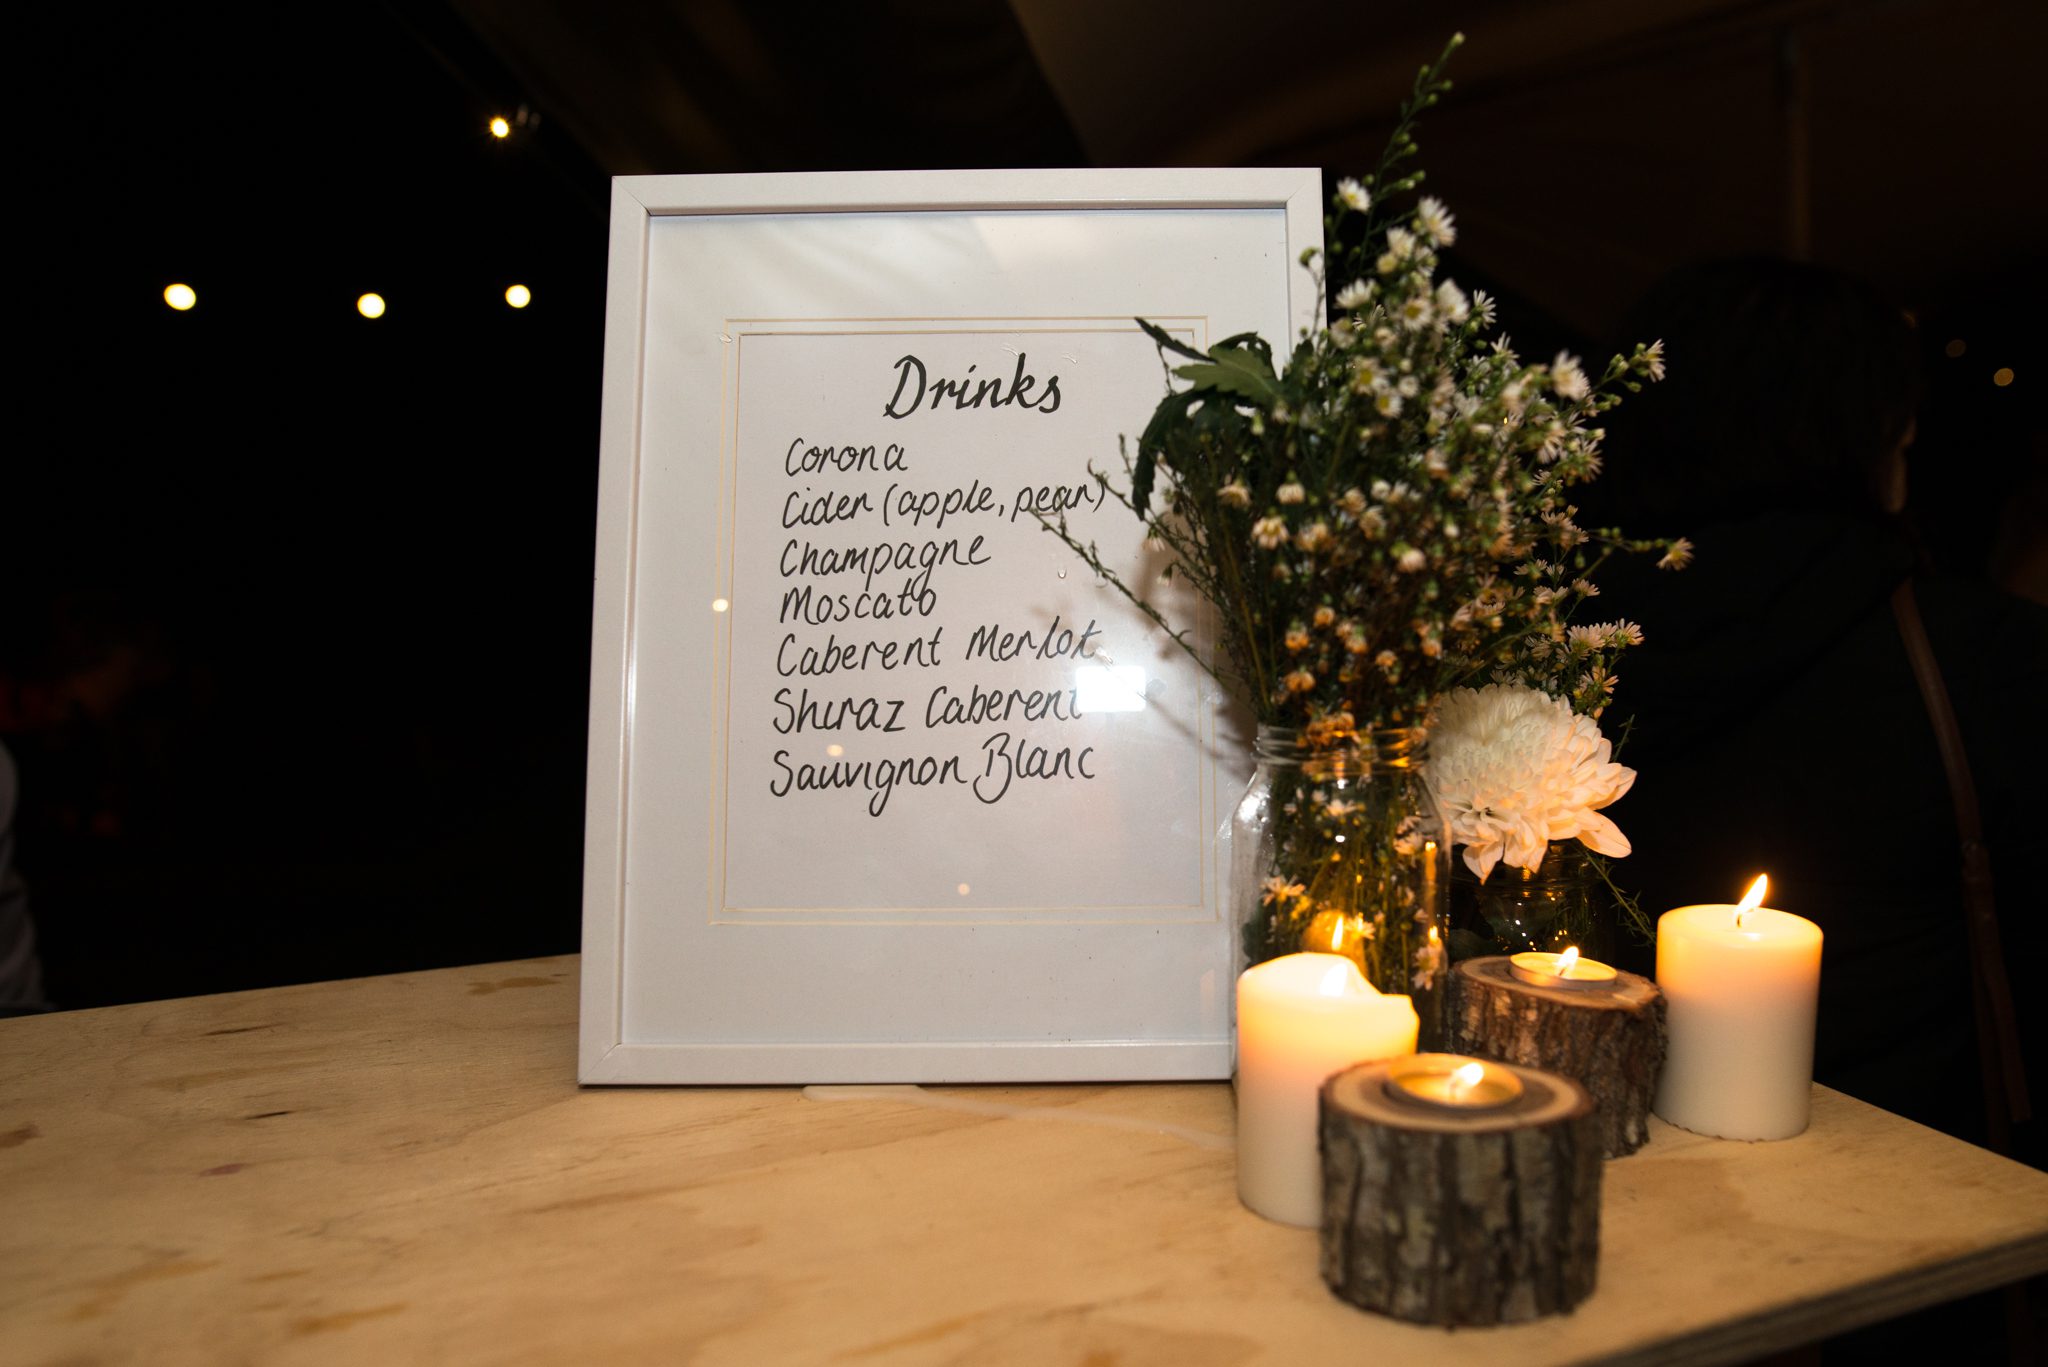 Drinks
Corona
Cider (apple, pear)
Champagne
Moscato
Caberent Merlot
Shiraz Caberent
Sauvignon Blanc